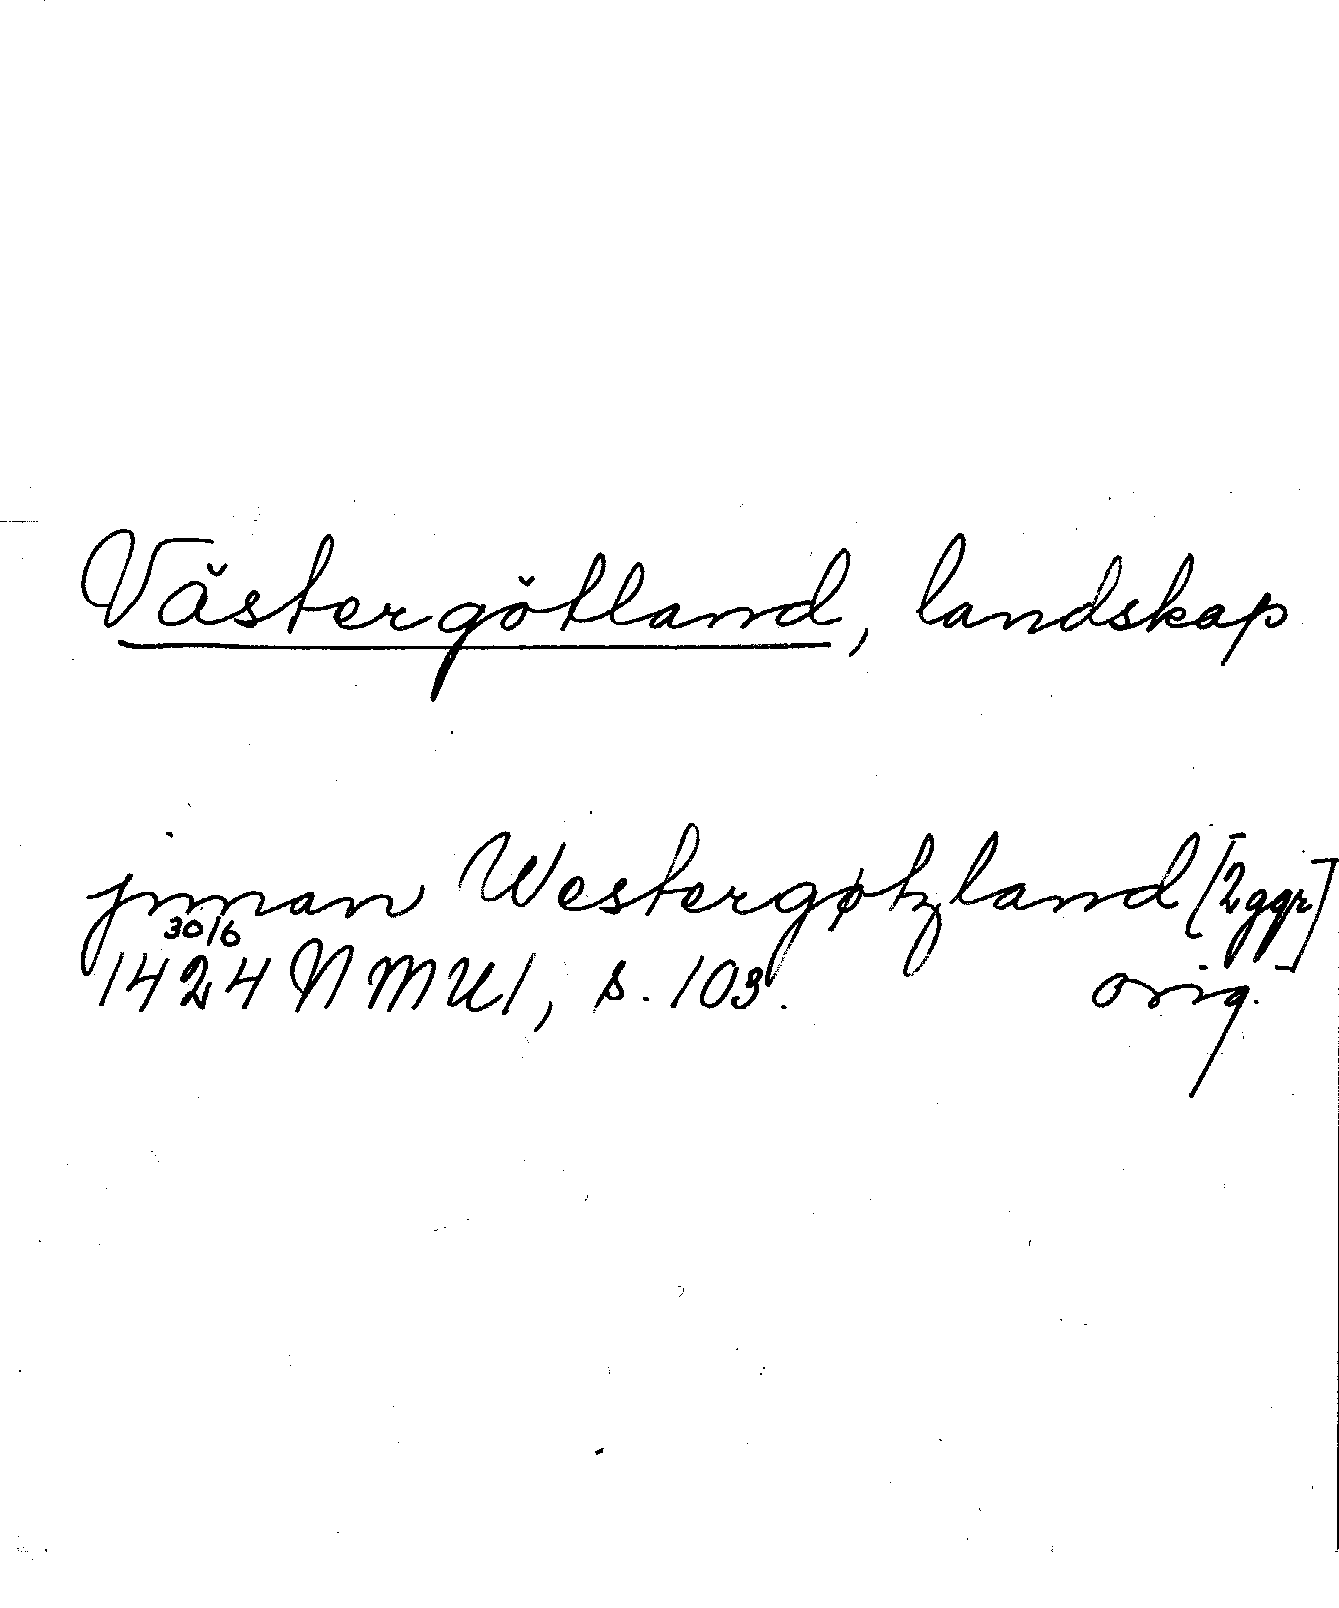 Västergötland, landskap
jnnan Westergøtzland [2 ggr]
30/6
1424 NMU1, s. 103. orig.